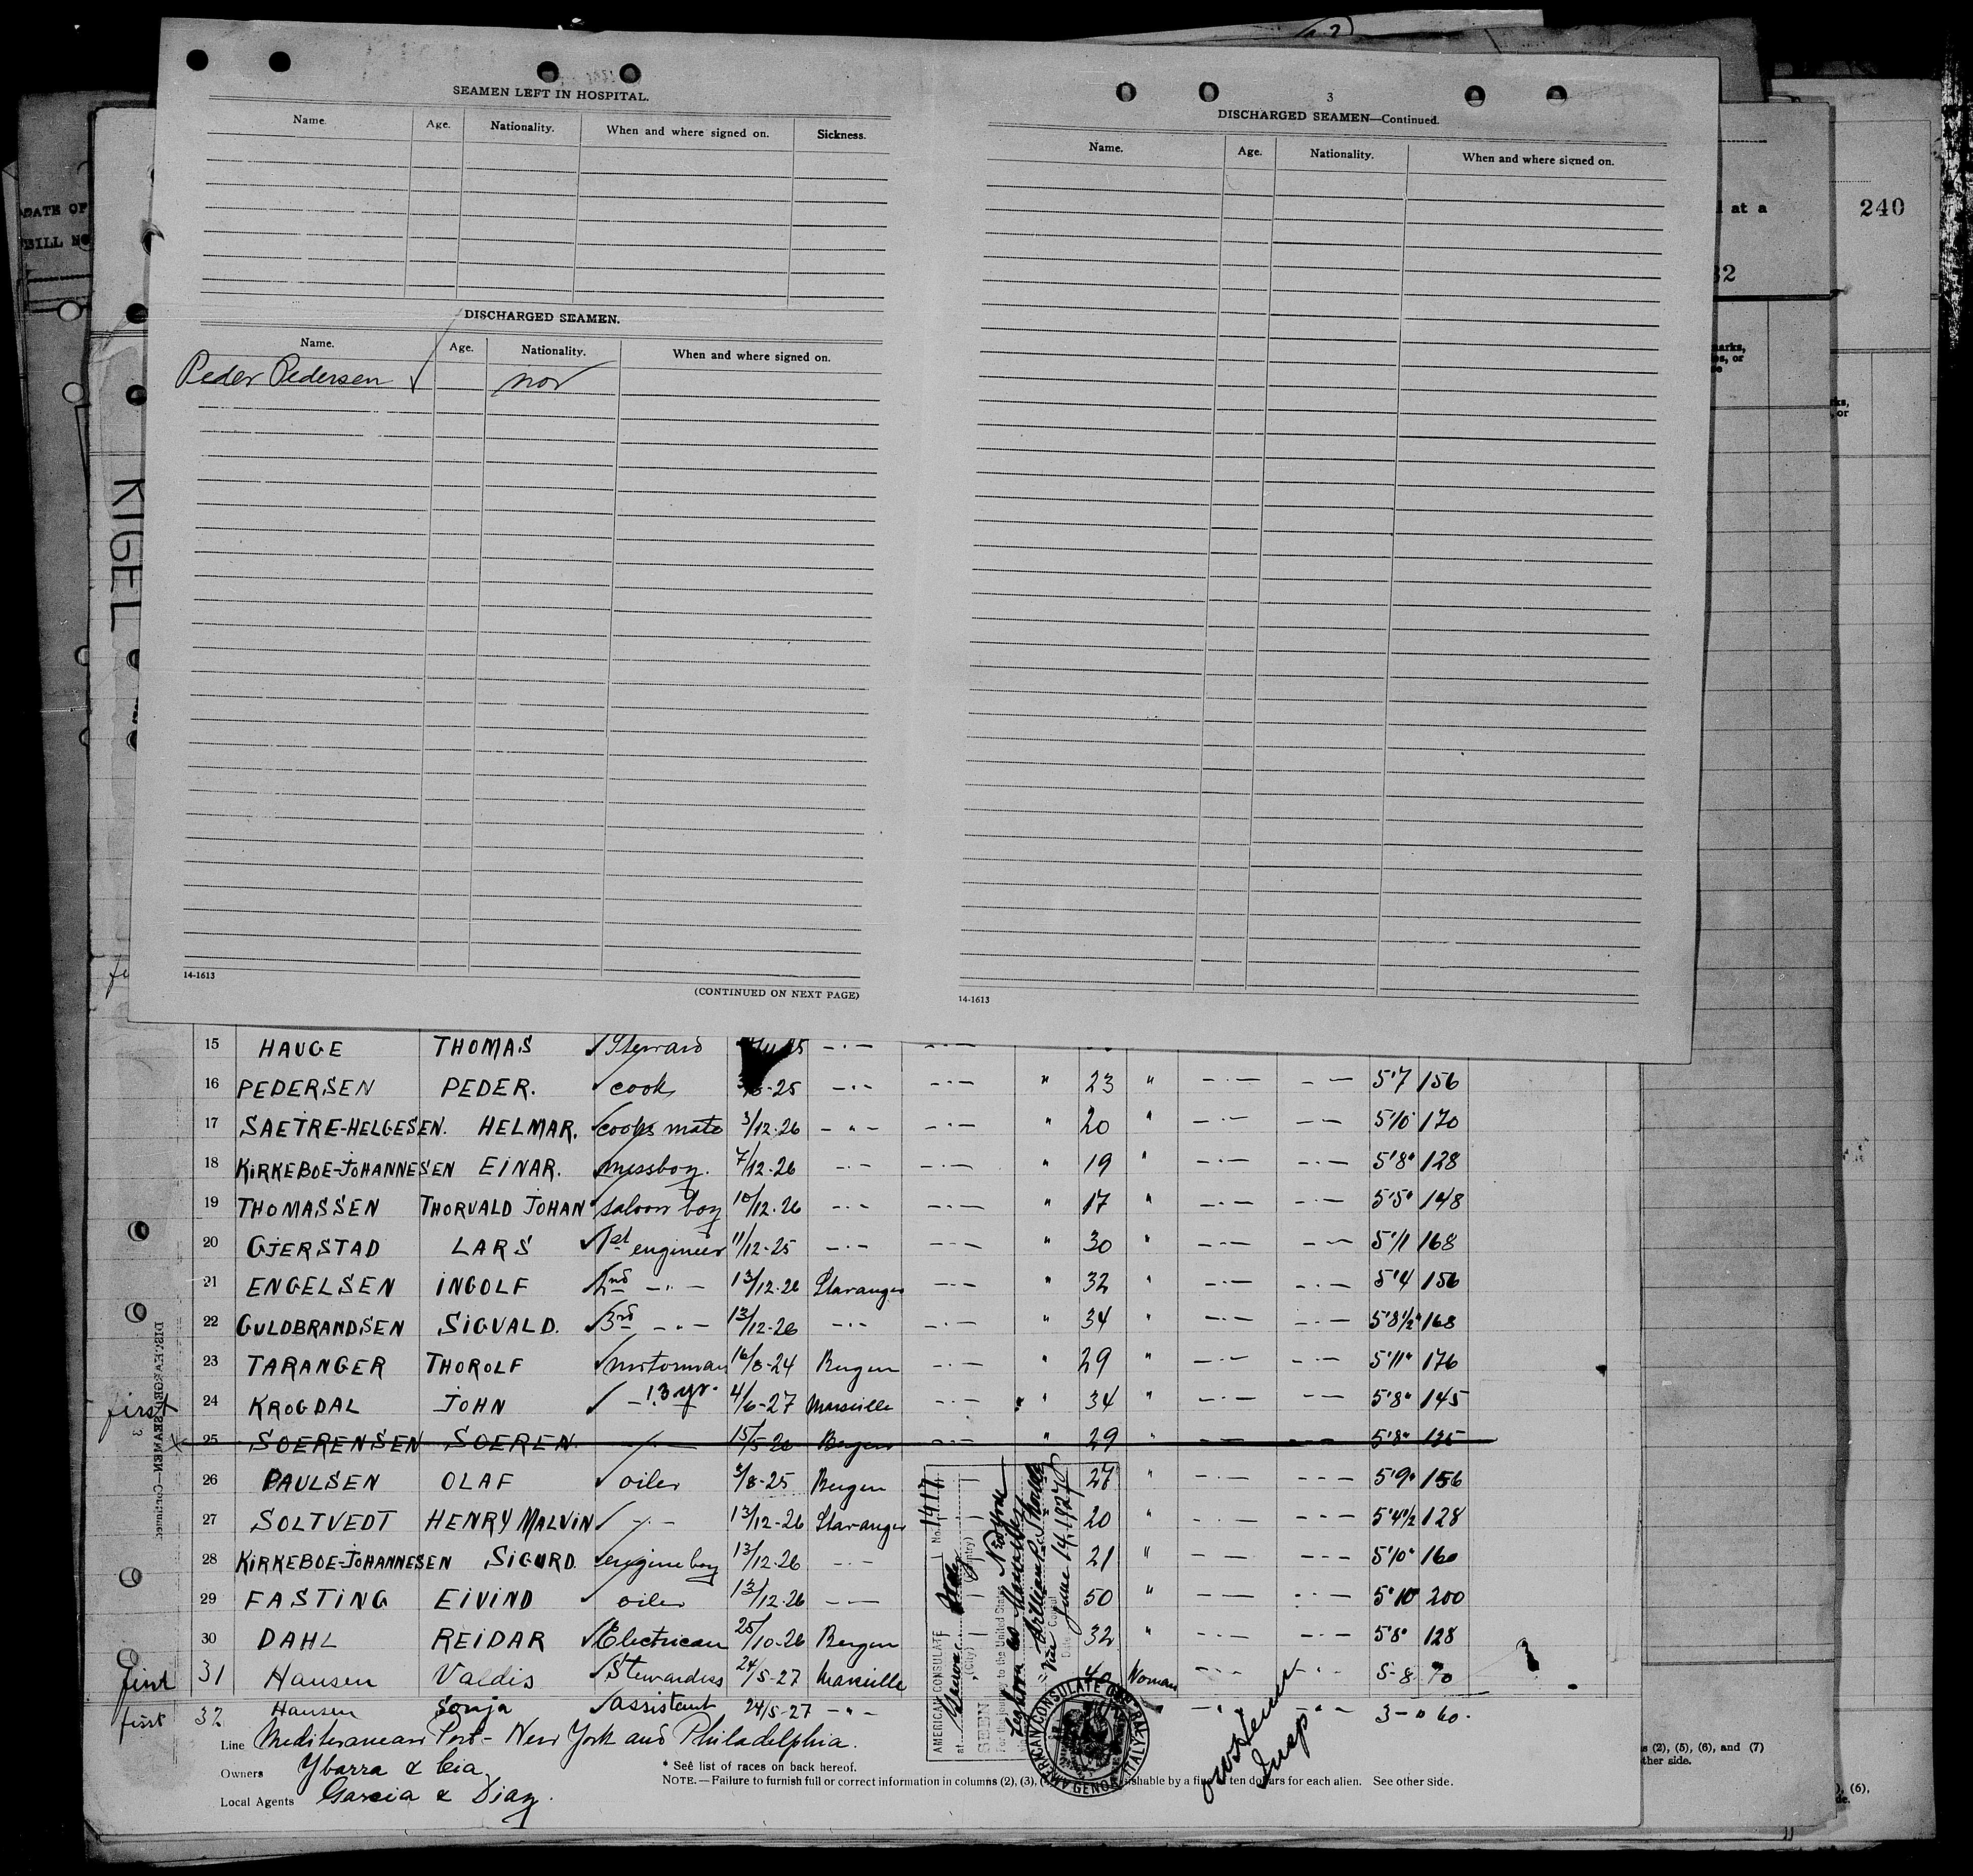 SEAMEN LEFT IN HOSPITAL.
Name. Age. Nationality. When and where signed on. Sickness.
DISCHARGED SEAMEN.
Name. Age. Nationality. When and where signed on.
Peder Pedersen ✓ nor
14-1613
(CONTINUED ON NEXT PAGE)
3
DISCHARGED SEAMEN—Continued.
Name. Age. Nationality. When and where signed on.
14-1613
DATE OF
BILL NO
KIGEL
at a
32
240
15 HAUGE THOMAS ✓ Steward
16 PEDERSEN PEDER. ✓ cook -25 — " — — · — " 23 " — · — — · — 5'7 156
17 SAETRE-HELGESEN. HELMAR. ✓ cooks mate 3/12-26 — " — — · — " 20 " — · — — · — 5'10 170
18 KIRKEBOE-JOHANNESEN EINAR. ✓ messboy. 7/12-26 — · — — · — " 19 " — · — — · — 5'8" 128
19 THOMASSEN THORVALD JOHAN ✓ saloon boy 10/12-26 — · — — · — " 17 " — · — — · — 5'5" 148
20 GJERSTAD LARS ✓ 1st engineer 11/12-25 — · — — · — " 30 " — · — — · — 5'11 168
21 ENGELSEN INGOLF ✓ 2nd — " — 13/12-26 Stavanger — · — " 32 " — · — — · — 5'4 156
22 GULDBRANDSEN SIGVALD. ✓ 3rd — " — 13/12-26 — · — — · — " 34 " — · — — · — 5'8½" 168
23 TARANGER THOROLF ✓ motorman 16/8-24 Bergen — · — " 29 " — · — — · — 5'11" 176
first 24 KROGDAL JOHN ✓ — " — 13 yr. 4/6-27 Marseille — · — " 34 " — · — — · — 5'8" 145
25 SOERENSEN SOEREN. — " — 15/5-26 Bergen — · — " 29 " — · — — · — 5'8" 135
26 PAULSEN OLAF ✓ oiler 3/8-25 Bergen 27 " — · — — · — 5'9" 156
27 SOLTVEDT HENRY MALVIN ✓ — · — 13/12-26 Stavanger 20 " — · — — · — 5'4½ 128
28 KIRKEBOE-JOHANNESEN SIGURD. ✓ engine boy 13/12-26 — · — 21 " — · — — · — 5'10" 160
29 FASTING EIVIND ✓ oiler 13/12-26 — · — 50 " — · — — · — 5'10 200
30 DAHL REIDAR ✓ Electrican 25/10-26 Bergen 32 " — · — — · — 5'8" 128
first 31 Hansen Valdis ✓ Stewardess 24/5-27 Marseille 40 Woman — · — — · — 5-8 70
first 32 Hansen Sonja ✓ assistent 24/5-27 — " — " — · — — · — 3-" 60.
DISCHARGED SEAMEN—Continued.
3
AMERICAN CONSULATE No. 1417
at Genoa (City) Italy (Country)
SEEN
For the journey to the United States
Vice Consul
Date June 14, 1927
AMERICAN CONSULATE GENERAL GENOA ITALY
Insp
Line Mediteranean Port - New York and Philadelphia.
Owners Ybarra & Cia
Local Agents Garcia & Diaz.
* See list of races on back hereof.
NOTE.—Failure to furnish full or correct information in columns (2), (3), ishable by a fine ten dollars for each alien. See other side.
s (2), (5), (6), and (7)
ther side.